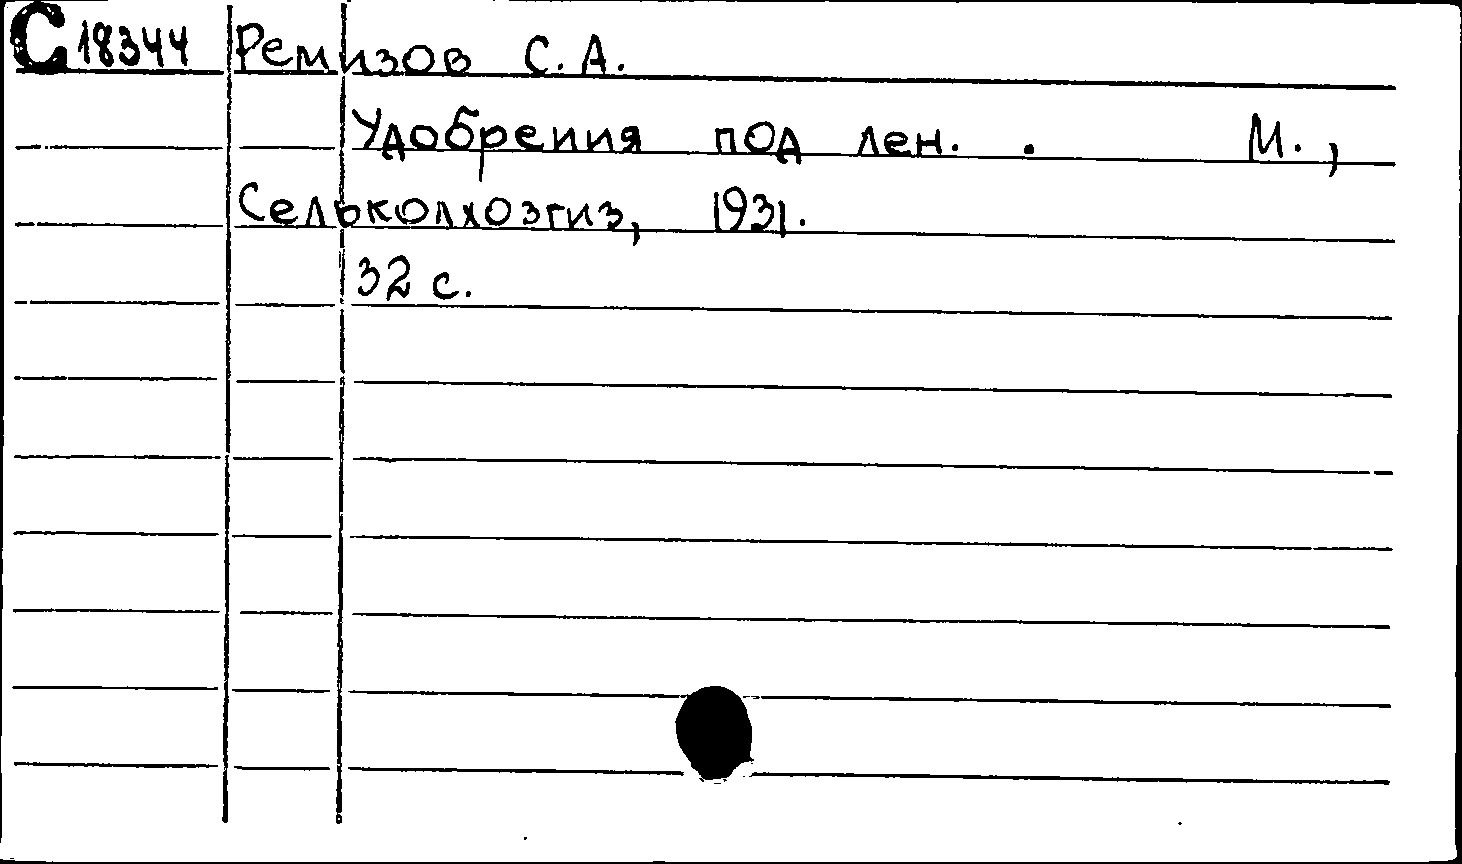 С 18344 Ремизов С. А.
Удобрения под лен. . М.,
Сельколхозгиз, 1931.
32 с.